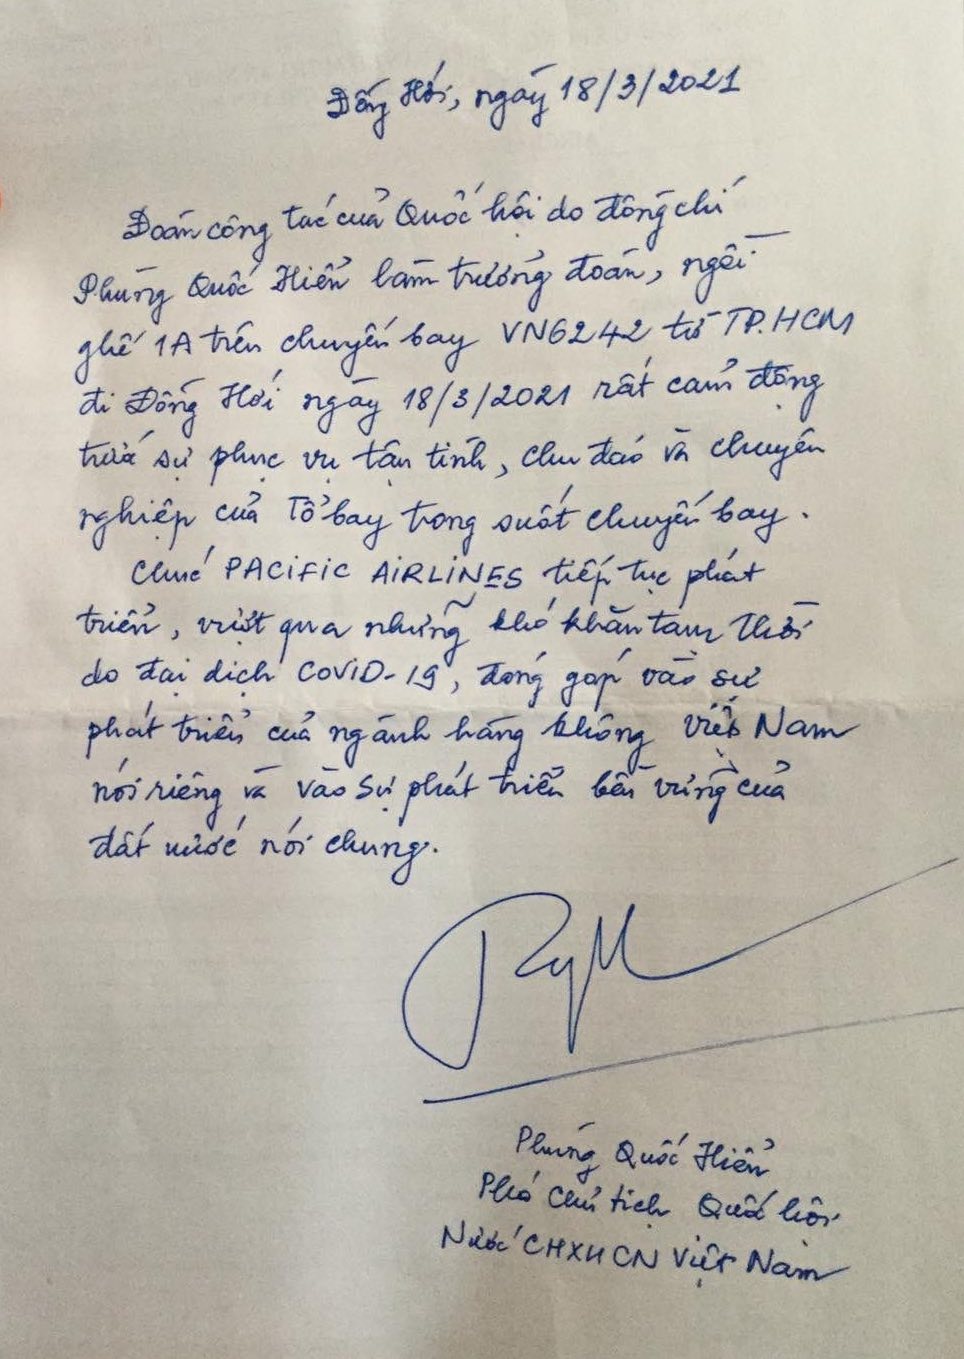 Đồng Hới, ngày 18/3/2021
Đoàn công tác của Quốc hội do đồng chí
Phùng Quốc Hiển làm trưởng đoàn, ngồi
ghế 1A trên chuyến bay VN6242 từ TP.HCM
đi Đồng Hới ngày 18/3/2021 rất cảm động
trước sự phục vụ tận tình, chu đáo và chuyên
nghiệp của Tổ bay trong suốt chuyến bay.
Chúc PACIFIC AIRLINES tiếp tục phát
triển, vượt qua những khó khăn tạm thời
do đại dịch COVID-19, đóng góp vào sự
phát triển của ngành hàng không Việt Nam
nói riêng và vào sự phát triển bền vững của
đất nước nói chung.
Phùng Quốc Hiển
Phó Chủ tịch Quốc hội
Nước CHXHCN Việt Nam